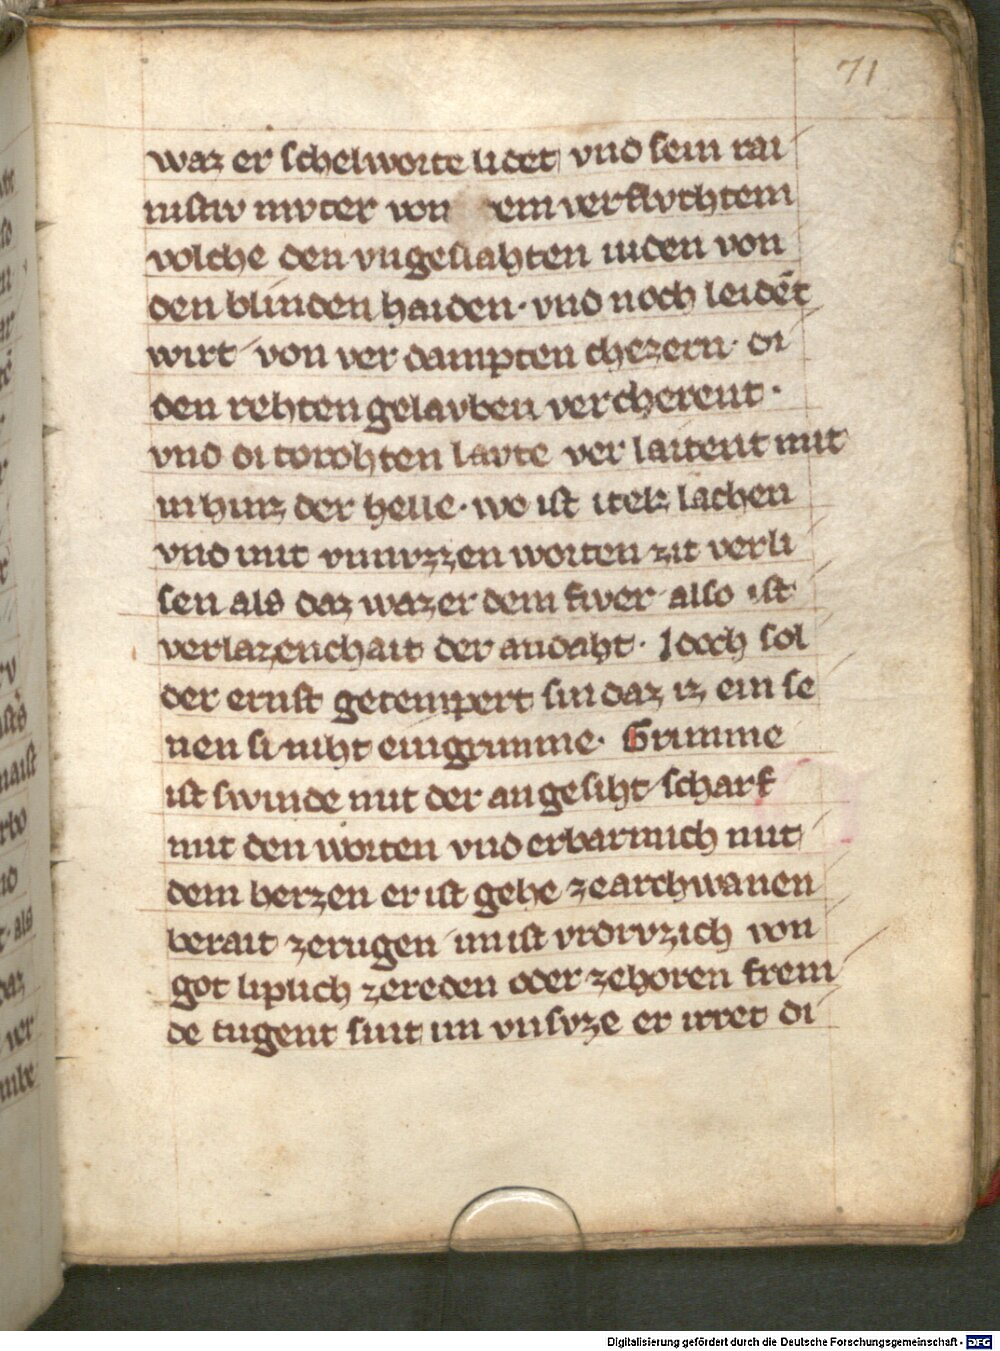 71
waz er schelworte lidet vnd sein rai
nistiv mvter von dem verflvchtem
volche den vngeslahten iuden von
den blinden haiden· vnd noch leidēt
wirt von ver dampten chezern· di
den rehten gelavben vercherent·
vnd di torohten lavte ver laitent mit
in hinz der helle· we ist itelz lachen
vnd mit vnnvzzen worten zit verli
sen als daz wazer dem fiver also ist
verlazenchait der andaht· Jdoch sol
der ernst getempert sin daz iz ein se
nen si niht ein grimme· Grimme
ist swinde mit der angesiht scharf
mit den worten vnd erbarmich mit
dem herzen er ist gehe ze archwanen
berait zerugen im ist vrdrvzich von
got liplich zereden oder zehoren frem
de tugent sint im vnsvze er irret di
Digitalisierung gefördert durch die Deutsche Forschungsgemeinschaft - DFG